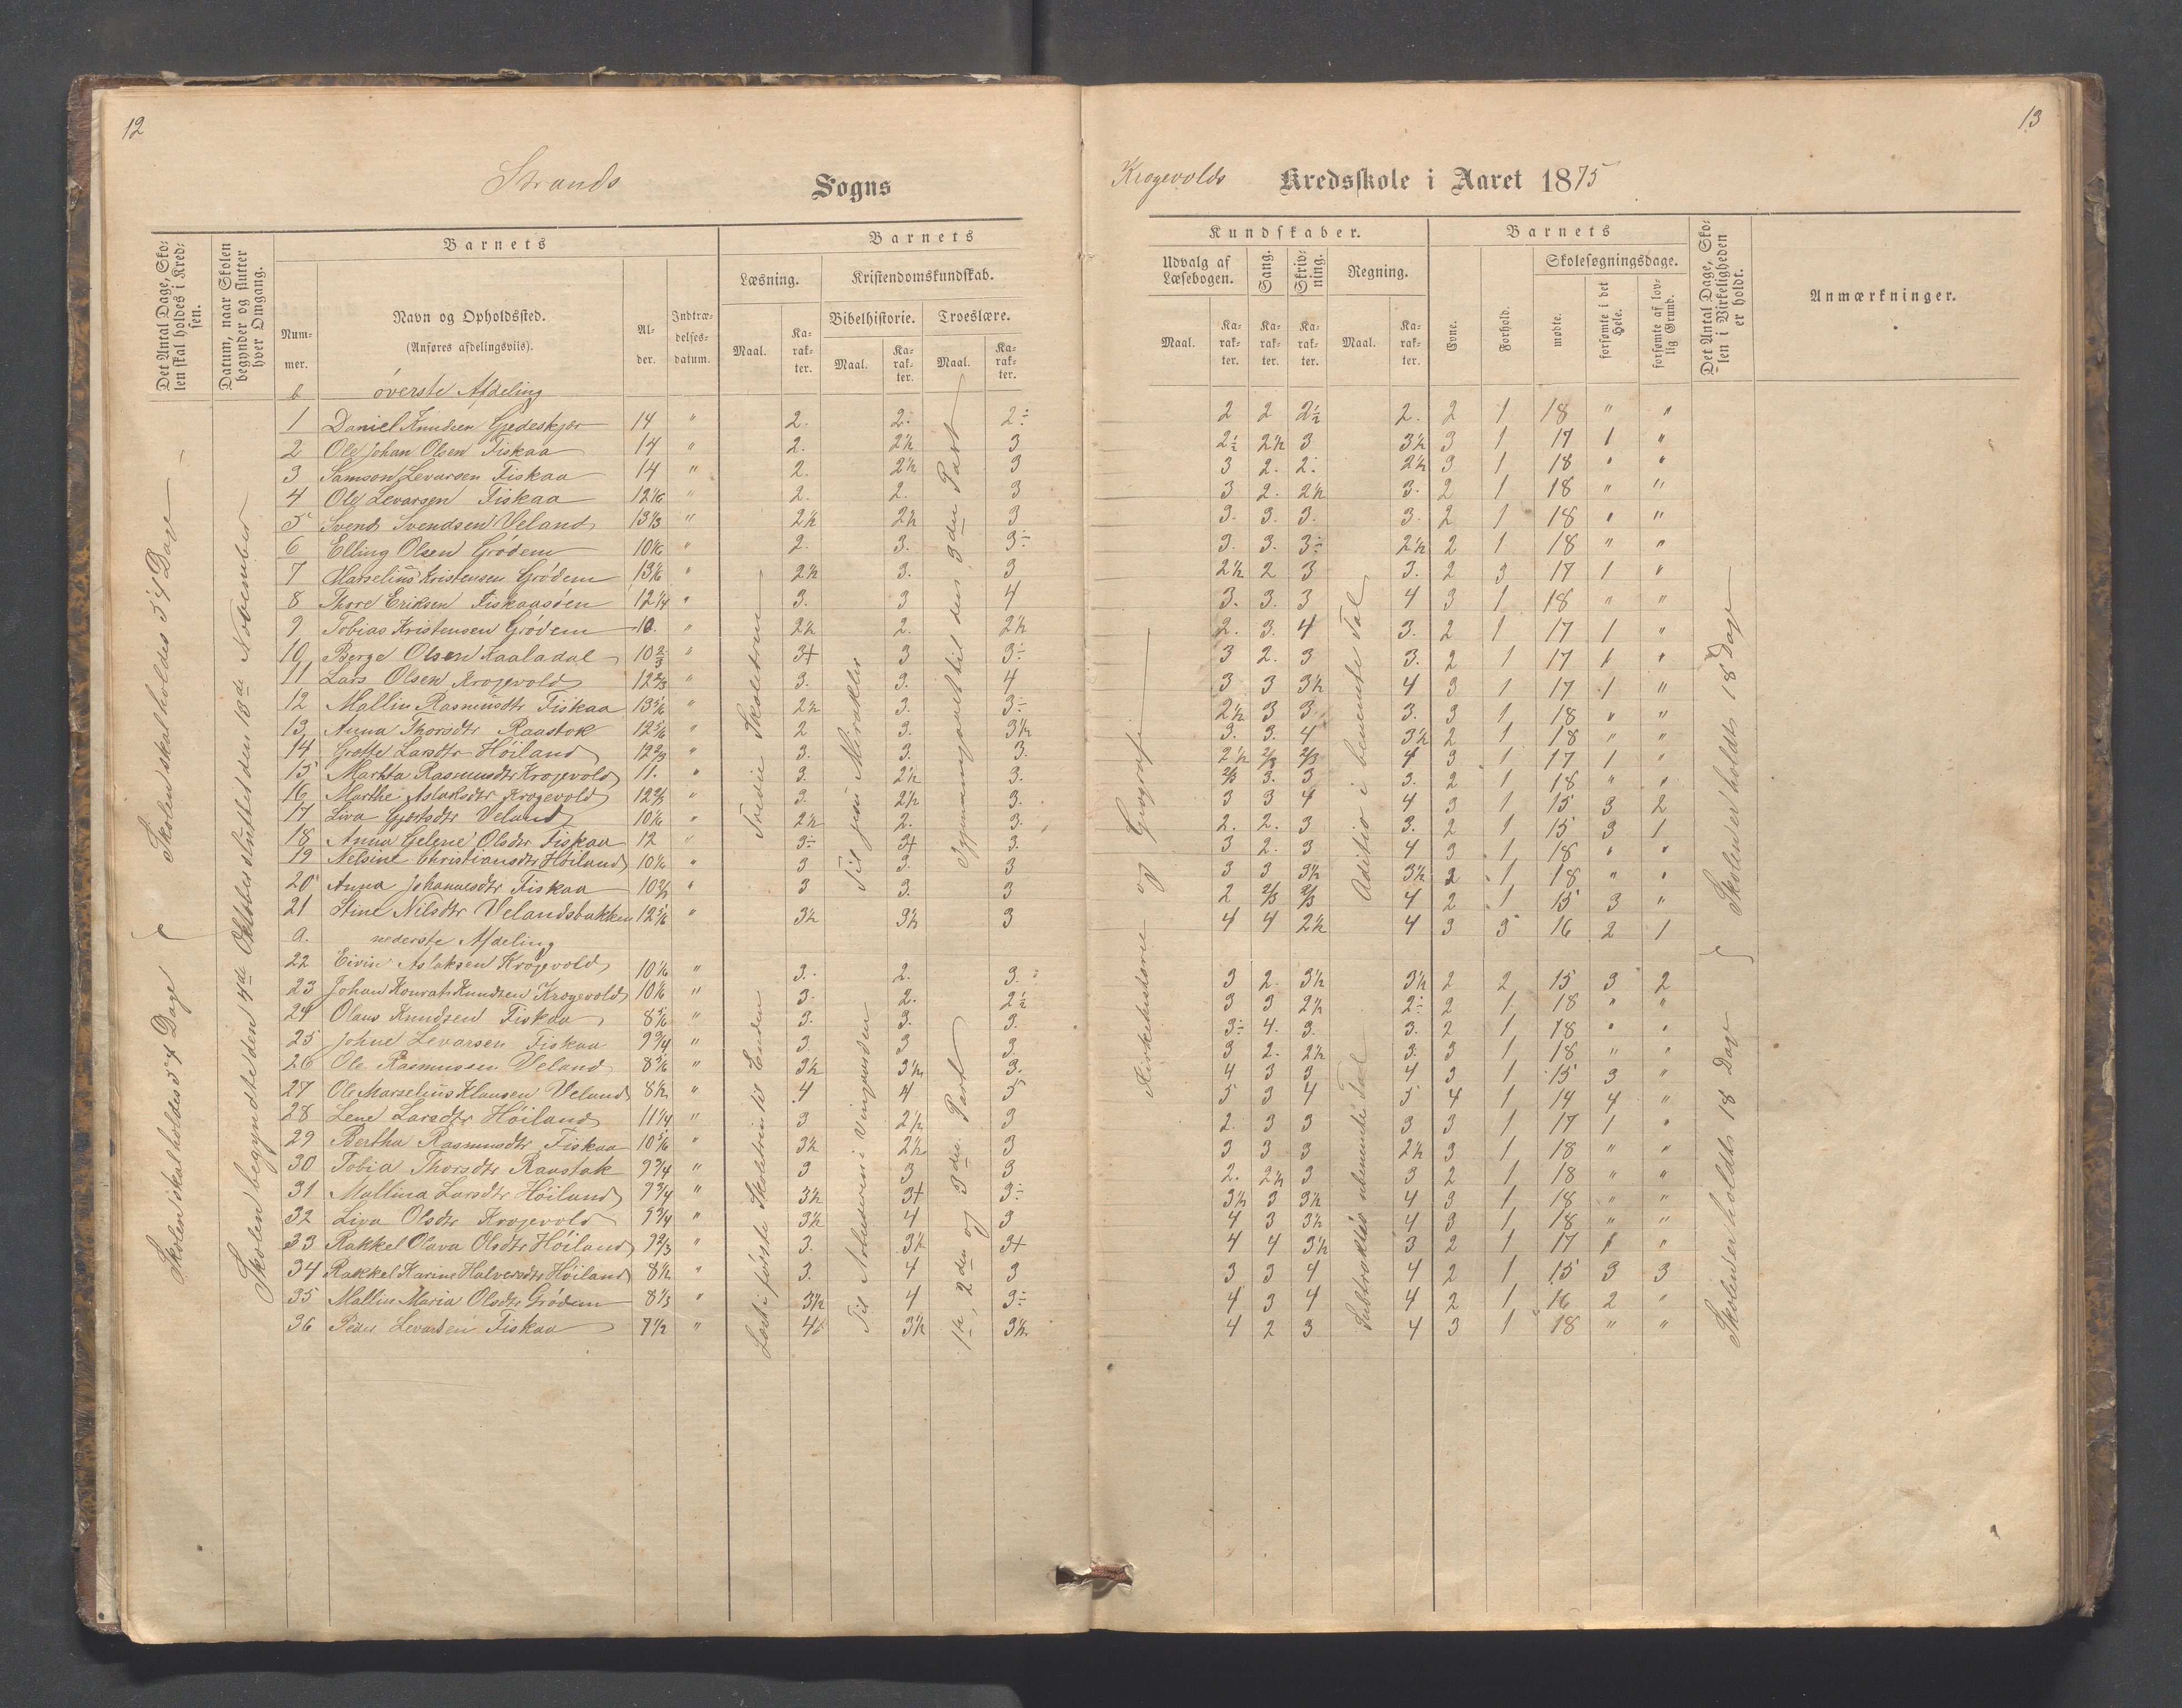 12
13
Strands Sogns
Krogevolds Kredsskole i Aaret 1875
Det Antal Dage, Skolen skal holdes i Kredsen.
Datum, naar Skolen begynder og slutter hver Omgang.
Barnets
Nummer.
Navn og Opholdssted.
(Anføres afdelingsviis).
Alder.
Indtrædelsesdatum.
Barnets
Læsning.
Maal.
Karakter.
Kristendomskundskab.
Bibelhistorie.
Maal.
Karakter.
Troeslære.
Maal.
Karakter.
Kundskaber.
Udvalg af Læsebogen.
Maal.
Karakter.
Sang.
Karakter.
Skrivning.
Karakter.
Regning.
Maal.
Karakter.
Barnets
Evne.
Forhold.
Skolesøgningsdage.
mødte.
forsømte i det Hele.
forsømte af lovlig Grund.
Det Antal Dage, Skolen i Virkeligheden er holdt.
Anmærkninger.
b øverste Afdeling
1 Daniel Knudsen Gjedeskjær 14 " 2. 2. 2÷ 2 2 2½ 2. 2 1 18 " "
2 Ole Johan Olsen Fiskaa 14 " 2. 2½ 3 2½ 2½ 3 3½ 3 1 17 1 "
3 Samson Levarsen Fiskaa 14 " 2. 2½ 3 3 2. 2. 2½ 3 1 18 " "
4 Ole Levarsen Fiskaa 12 1/6 " 2. 2. 3 3 2. 2½ 3. 2 1 18 " "
5 Svend Svendsen Veland 13 1/3 " 2½ 2½ 3 3. 3. 3. 3. 2 1 18 " "
6 Elling Olsen Grødem 10 1/6 " 2. 3. 3÷ 3. 3. 3÷ 2½ 2 1 18 " "
7 Marselius Kristensen Grødem 13 1/6 " 2½ 3. 3 2½ 2 3 3. 2 3 17 1 "
8 Thore Eriksen Fiskaasøen 12 1/4 " 3. 3 4 3. 3. 3 4 3 1 18 " "
9 Tobias Kristensen Grødem 10. " 2½ 2. 2½ 2. 3. 4 3. 2 1 17 1 "
10 Berge Olsen Kaaladal 10 2/3 " 3+ 3 3÷ 3 2. 3 3. 2 1 17 1 "
11 Lars Olsen Krogevold 12 2/3 " 3. 3. 4 3 3 3½ 4 3 1 17 1 "
12 Mallin Rasmusdtr Fiskaa 13 1/6 " 2½ 3. 3÷ 2½ 3 3. 3. 3 1 18 " "
13 Anna Thorsdtr Raustok 12 5/6 " 2 3. 3½ 3. 3. 4 3½ 2 1 18 " "
14 Grethe Larsdtr Høiland 12 2/3 " 3. 3. 3. 2½ 2/3 2/3 4 3 1 17 1 "
15 Martha Rasmusdtr Krogevold 11. " 3. 2½ 3. 2/3 3. 3 3. 2 1 18 " "
16 Marthe Aslaksdtr Krogevold 12 2/3 " 3. 2½ 3. 3 3 4 4 3 1 15 3 2
17 Liva Gjertsdtr Veland 10 1/6 " 2½ 2. 3. 2. 2. 3 3. 2 1 15 3 1
18 Anna Helene Olsdtr Fiskaa 12 " 3÷ 3+ 3. 3 2. 3 4 3 1 18 " "
19 Nelsine Christiansdtr Høiland 10 1/6 " 3 3. 3 3 3 3½ 3½ 2 1 18 " "
20 Anna Johannesdtr Fiskaa 10 2/3 " 3 3. 3 2 2/3 2/3 4 2 1 15 3 "
21 Stine Nilsdtr Velandsbakken 12 5/6 " 3½ 3½ 3 4 4 2½ 4 3 3 16 2 1
a. nederste Afdeling
22 Eivin Aslaksen Krogevold 10 1/6 " 3. 2. 3. 3 2. 3½ 3½ 2 2 15 3 2
23 Johan Konrat Knudsen Krogevold 10 1/6 " 3. 2. 2½ 3 3 2½ 2÷ 2 1 18 " "
24 Olaus Knudsen Fiskaa 8 5/6 " 3. 3. 3. 3÷ 4. 3. 3. 2 1 18 " "
25 Johne Levarsen Fiskaa 9 3/4 " 3 3 3. 3 2. 2½ 3. 3 1 18 " "
26 Ole Rasmussen Veland 8 5/6 " 3½ 3½ 3. 4 3 3 4 3 1 15 3 "
27 Ole Marselius Klausen Veland 8½ " 4 4 5 5 3 4 5 4 1 14 4 "
28 Lene Larsdtr Høiland 11 1/4 " 3 2½ 3 2. 3 3 3 3 1 17 1 "
29 Bertha Rasmusdtr Fiskaa 10 5/6 " 3½ 2½ 3 3 3 3 2½ 3 1 18 " "
30 Tobia Thorsdtr Raustok 9 3/4 " 3 3 3 2. 2½ 3 3 2 1 18 " "
31 Mallina Larsdtr Høiland 9 3/4 " 3½ 3+ 3÷ 3½ 3 3½ 4 3 1 18 " "
32 Liva Olsdtr Krogevold 9 3/4 " 3½ 4 3 4 3 3½ 4 3 1 18 " "
33 Rakkel Olava Olsdtr Høiland 9 2/3 " 3. 3½ 3+ 4 4 3½ 3 2 1 17 1 "
34 Rakkel Karine Halversdtr Høiland 8½ " 3. 4 3 3 3 4 4 2 1 15 3 3
35 Mallin Maria Olsdtr Grødem 8 1/3 " 3½ 4 3÷ 4 3 4 4 2 1 16 2 "
36 Peder Levarsen Fiskaa 7½ " 4 3½ 3½ 4 2 3 4 3 1 18 " "
Skolen skal holdes 54 Dage
Skolen skal holdes 54 Dage
Skolen begyndte den 4de Oktober sluttet den 13de November
Tredie Skoletrin
Læst i første Skoletrin til Enden
Til Jesu Mirakler
Til Arbeiderne i Viingaarden
Igjennemgaaet til den 3den Part
1ste, 2den og 3den Part
Kirkehistorie og Geografi
Aditio i benævnte Tal
Subtraktio ubenævnte Tal
Skolen er holdt 18 Dage
Skolen er holdt 18 Dage